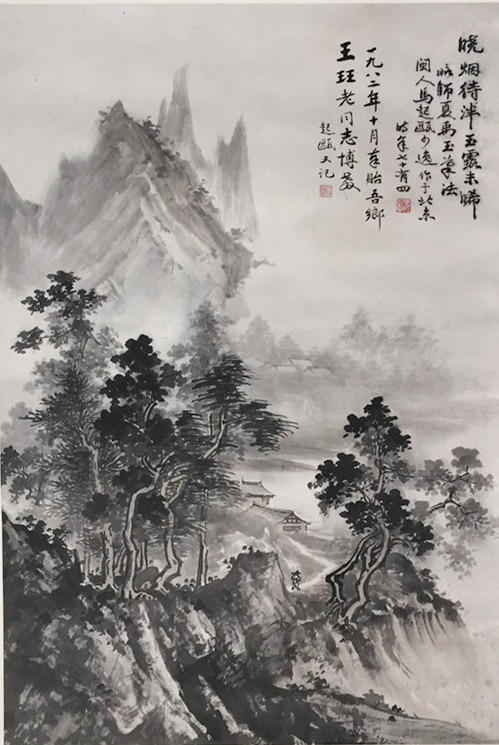 晓烟待泮玉露未晞
临师夏禹玉笔法
闽人马起瓯少逸作于北京
时年七十有四
一九八二年十月奉贻吾乡
王珏老同志博教
起瓯又记